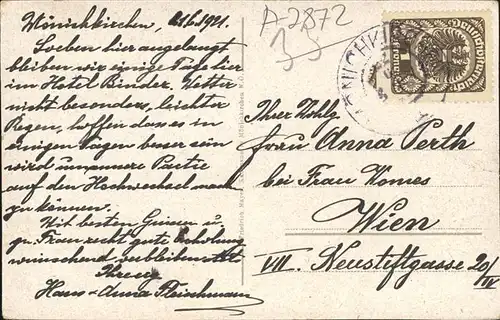 Mönichkirchen, 21/6 1921.
Soeben hier angelangt
bleiben wir einige Tage hier
im Hotel Binder. Wetter
nicht besonders, leichter
Regen, hoffen dass es in
einigen Tagen besser sein
wird um unsere Partie
auf den Hochwechsel mach
zu können.
Mit besten Grüssen u.
gn. Frau recht gute Erholung
wünschend verbleiben
Ihre
Hans & Anna Fleischmann
A-2872
35
MÖNICHKIRCHEN
Deutschösterreich
1
Ihrer Wohlg
Frau Anna Perth
bei Frau Womes
Wien
VII. Neustiftgasse 20/IV